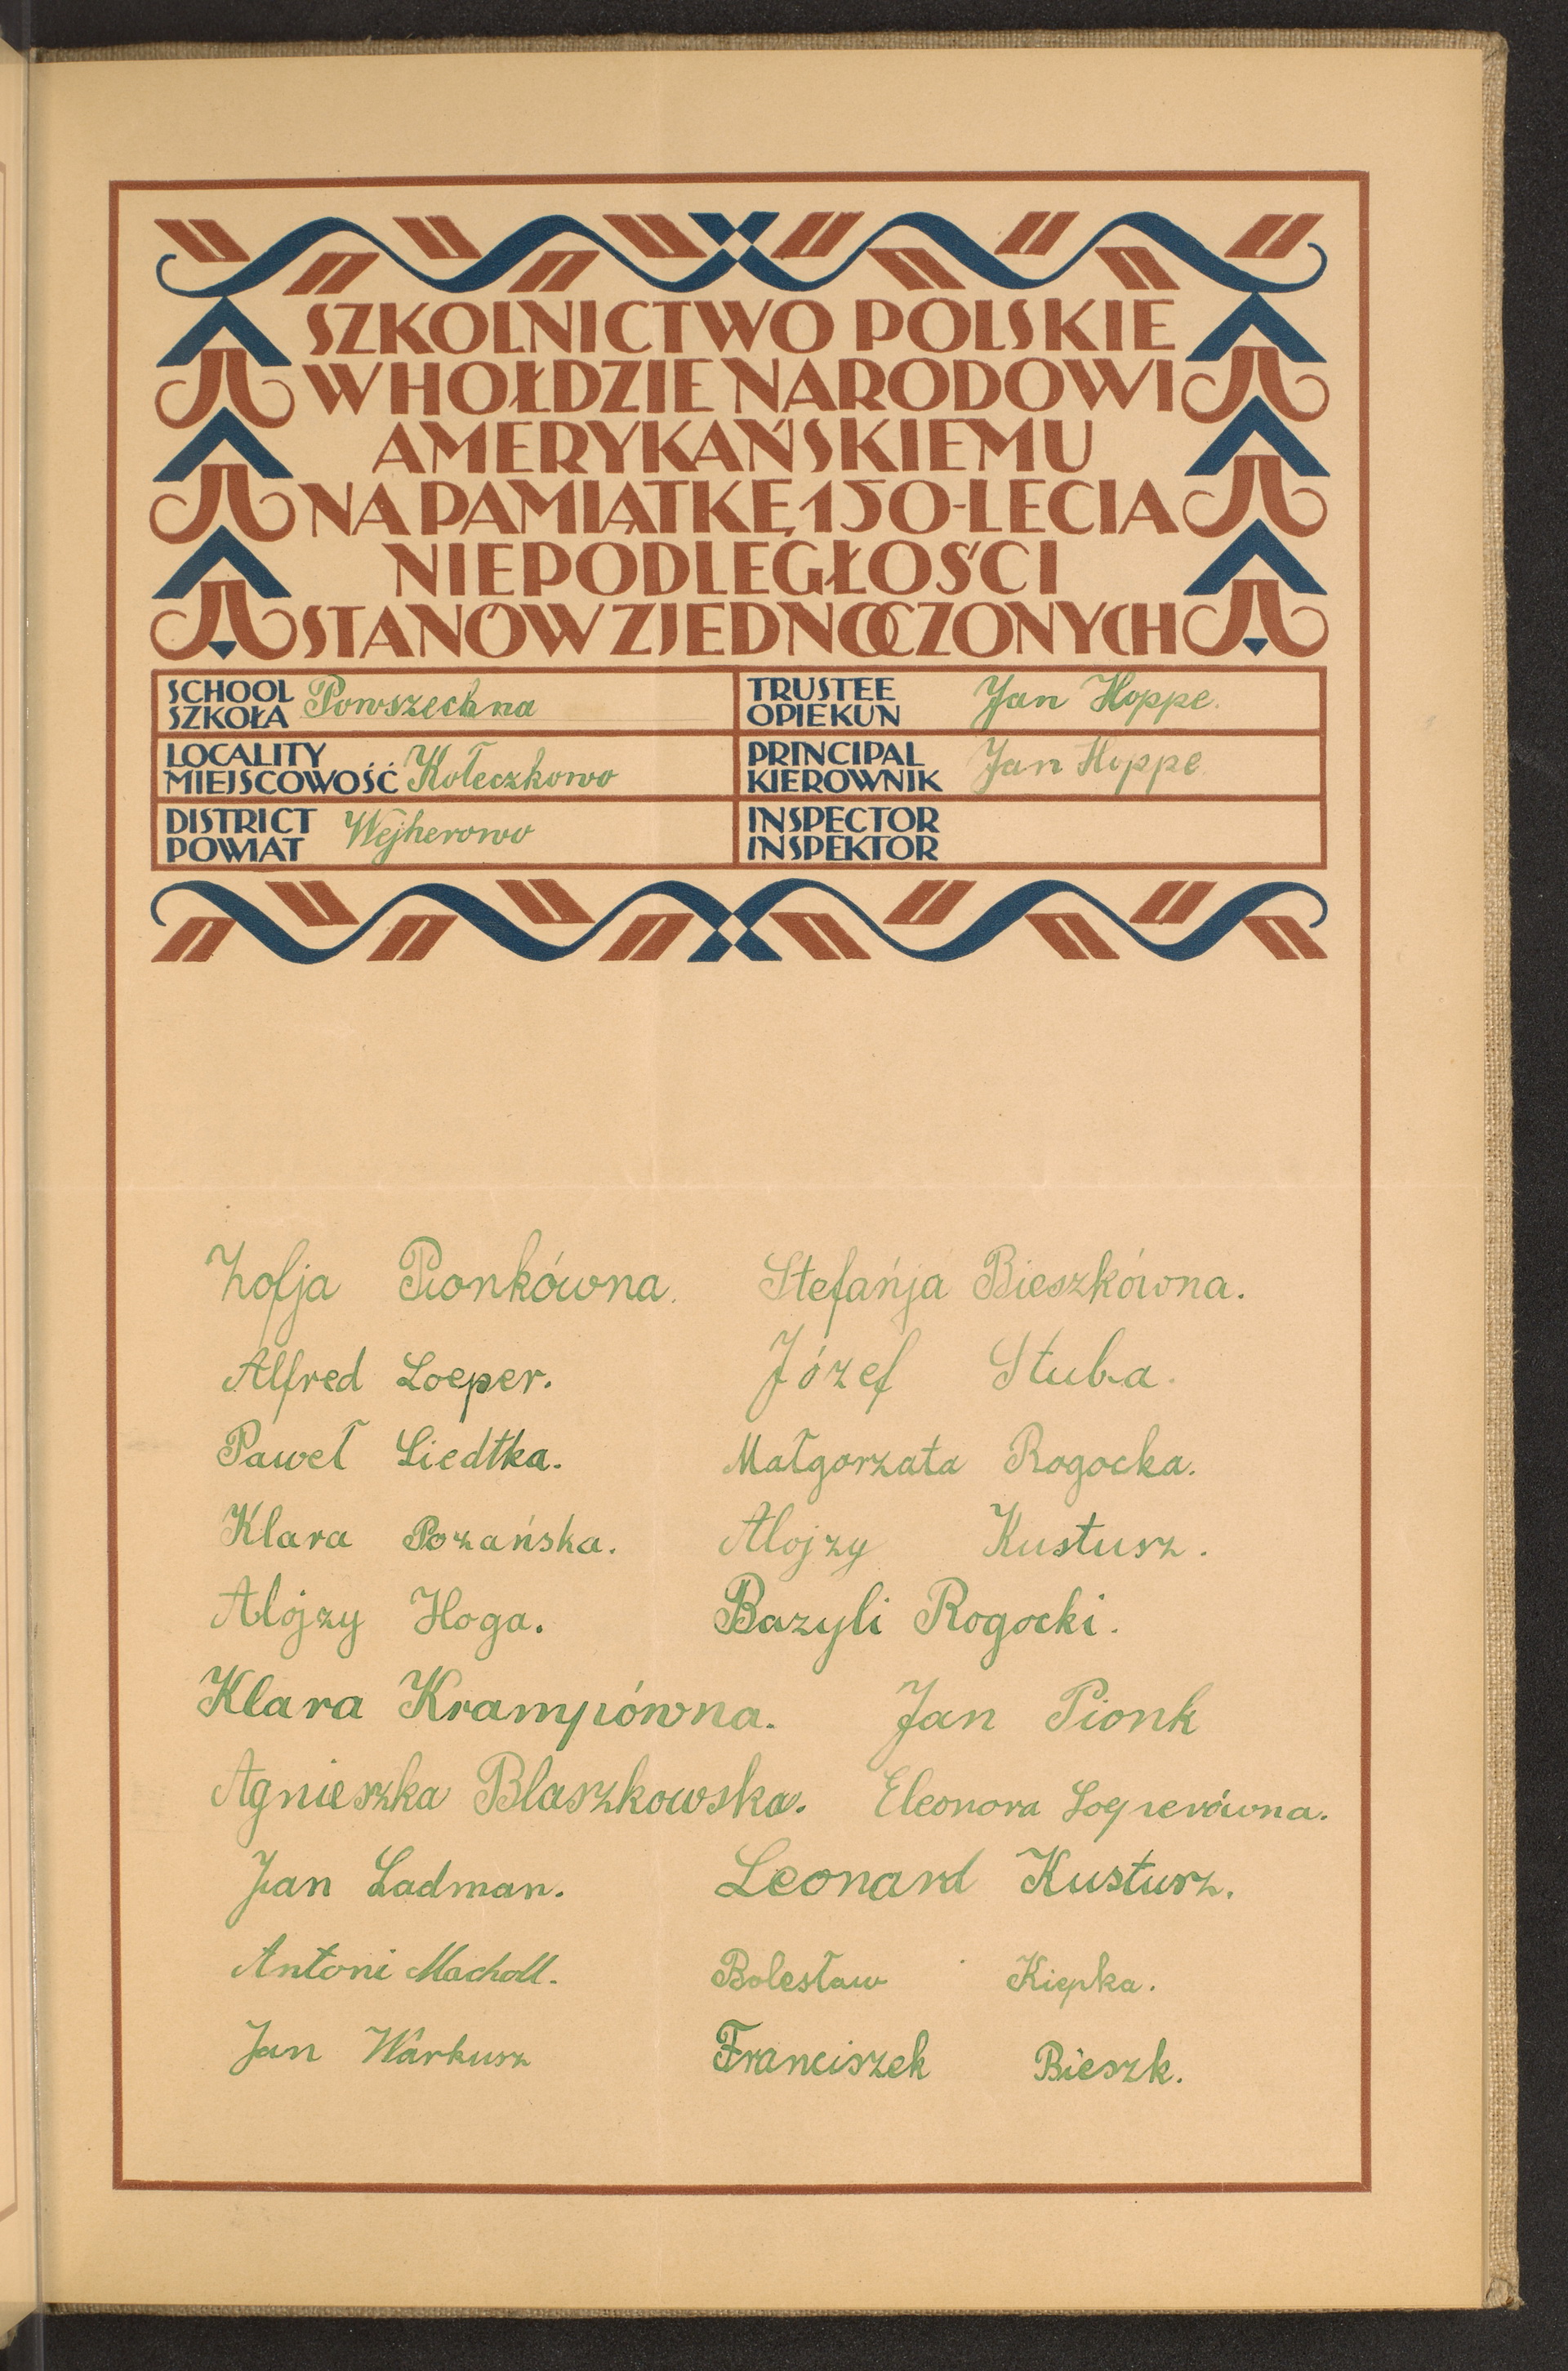 SZKOLNICTWO POLSKIE
W HOŁDZIE NARODOWI
AMERYKAŃSKIEMU
NA PAMIĄTKĘ 150-LECIA
NIEPODLEGŁOŚCI
STANÓW ZJEDNOCZONYCH
SCHOOL
SZKOŁA Powszechna
TRUSTEE
OPIEKUN Jan Hoppe.
LOCALITY
MIEJSCOWOŚĆ Kołeczkowo
PRINCIPAL
KIEROWNIK Jan Hoppe
DISTRICT
POWIAT Wejherowo
INSPECTOR
INSPEKTOR
Zofja Pionkówna. Stefańja Bieszkówna.
Alfred Loeper. Józef Stuba.
Paweł Liedtka. Małgorzata Rogocka.
Klara Pozańska. Alojzy Kustusz.
Alojzy Hoga. Bazyli Rogocki.
Klara Krampówna. Jan Pionk
Agnieszka Blaszkowska. Eleonora Loeperówna.
Jan Ladman. Leonard Kustusz.
Antoni Macholl. Bolesław Kiepka.
Jan Warkusz Franciszek Bieszk.